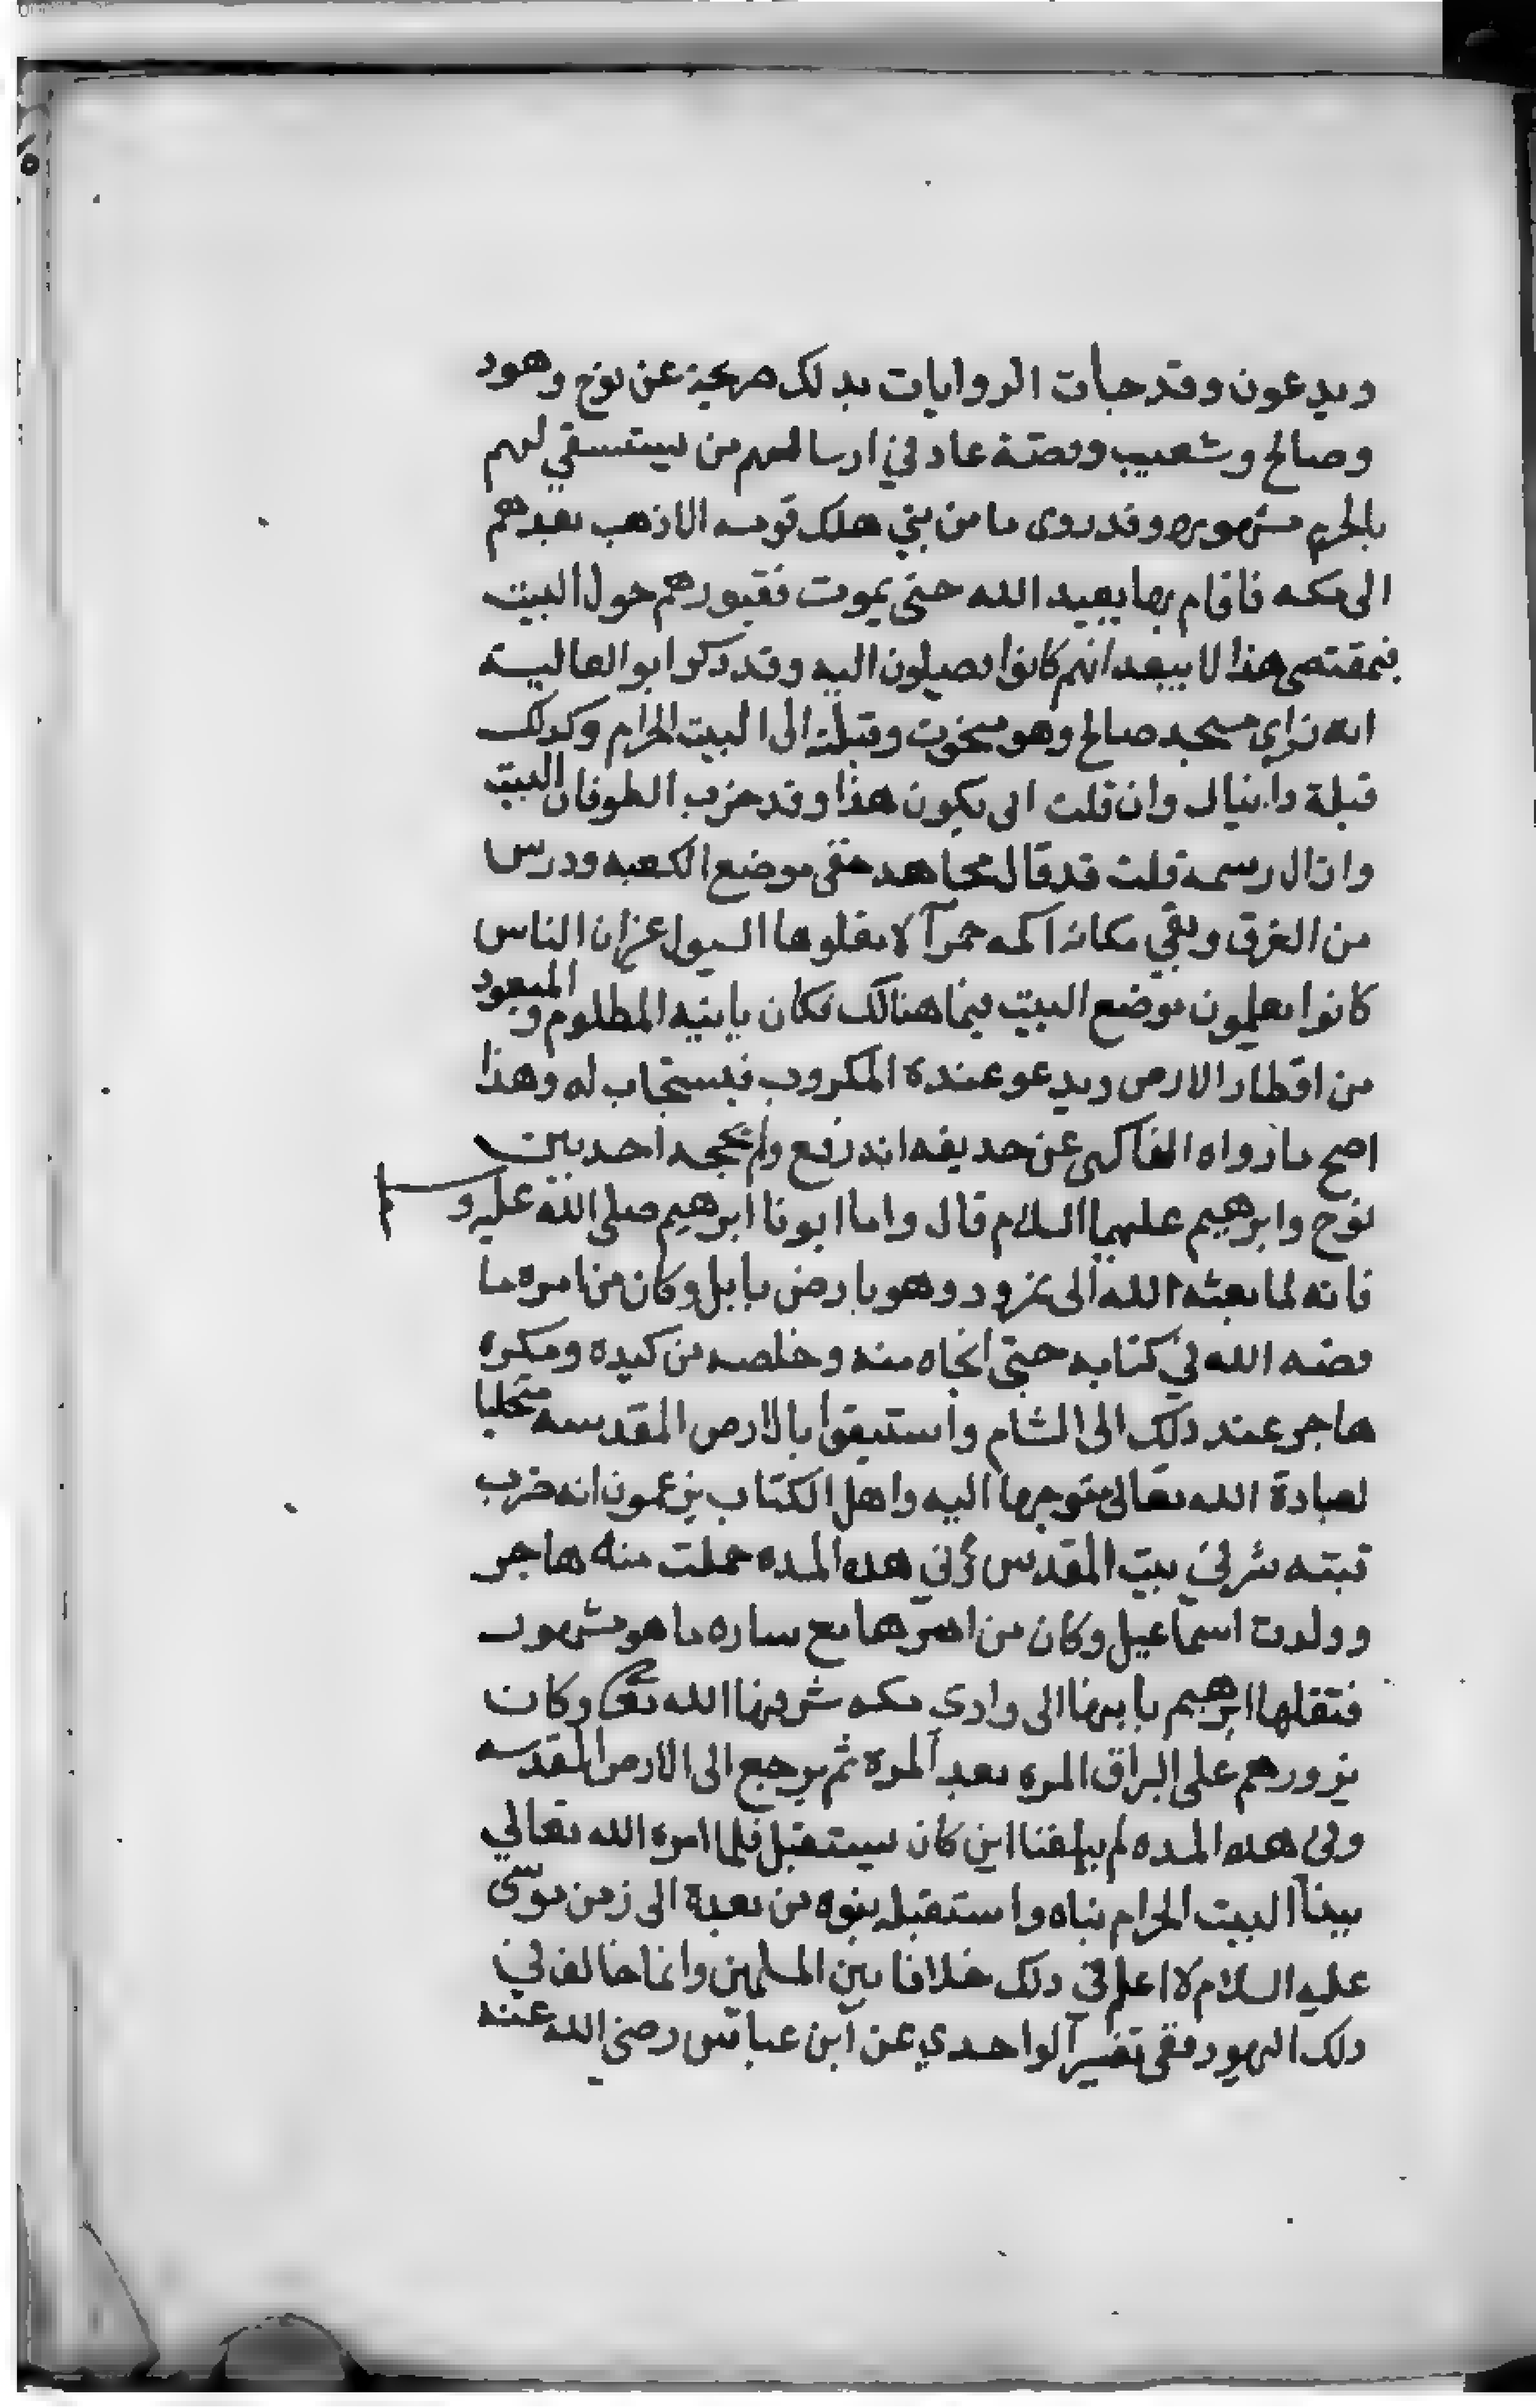 ويدعون وقد جأت الروايات بدلك صريحة عن نوح وهود
وصالح وشعيب وقصة عاد في ارسالهم من يستسقي لهم
بالحرم مشهوره وقد روى ما من بني هلك قومه الا ذهب بعدهم
الى مكه فاقام بها يعبد الله حتى يموت فقبورهم حول البيت
فمقتضى هذا لا يبعد انهم كانوا يصلون اليه وقد ذكر ابو العاليه
انه نراى مسجد صالح وهو منحوت وقبلته الى البيت الحرام وكدلك
قبلة دانيال وان قلت انى يكون هذا وقد خرب الطوفان البيت
وازال رسمه قلت قد قال مجاهد خفي موضع الكعبه ودرس
من الغرق وبقي مكانه اكمه حمرآ لا يعلوها السيول غير ان الناس
كانوا يعلمون موضع البيت فيما هنالك فكان ياتيه المظلوم و
من اقطار الارض ويدعو عنده المكروب فيستجاب له وهذا
اصح مما رواه الفاكهى عن حديفه انه رفع ولم يحجه احد بين
نوح وابرهيم عليهما السلام قال واما ابونا ابرهيم صلى الله عليه و
فانه لما بعثه الله الى نمرود وهو بارض بابل وكان من امره ما
قصه الله في كتابه حتى انجاه منه وخلصه من كيده ومكره
هاجر عند دلك الى الشام و بالارض المقدسه متخليا
لعبادة الله تعالى متوجها اليه واهل الكتاب يزعمون انه ضرب
قبته شرقي بيت المقدس وفي هده المده حملت منه هاجر
وولدت اسماعيل وكان من امرها مع ساره ما هو مشهور
فنقلها ابرهيم بابنها الى وادي مكه شرفها الله تعالى وكان
يزورهم على البراق المره بعد المره ثم يرجع الى الارض المقدسه
وفى هده المده لم يبلغنا اين كان يستقبل فلما امره الله تعالي
ببنآ البيت الحرام بناه واستقبله بنوه من بعده الى زمن موسى
عليه السلام لا اعلم في دلك خلافا بين المسلمين وانما خالف في
دلك اليهود ففى تفسير الواحدي عن ابن عباس رضي الله عنه